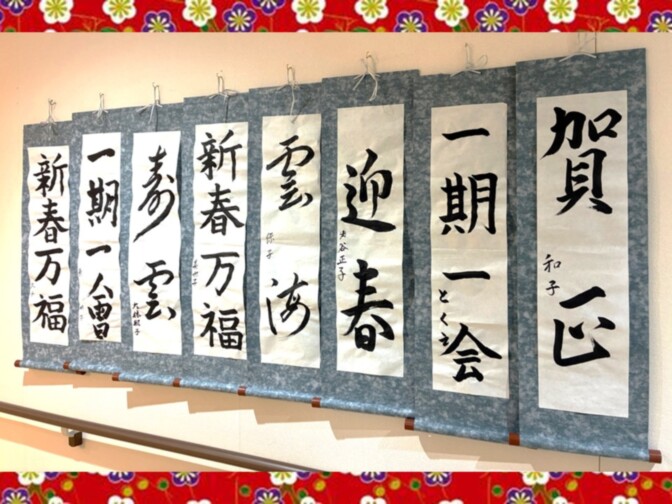 賀正
和子
一期一会
迎春
雲海
寿雲
新春万福
一期一會
新春万福